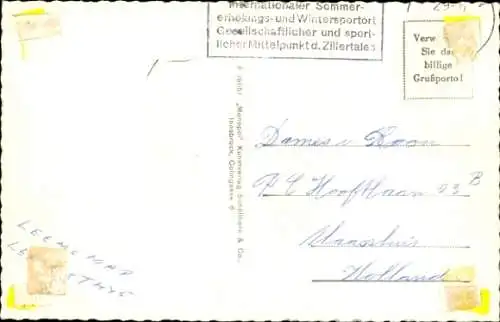 Internationaler Sommer-
erholungs- und Wintersportort
Gesellschaftlicher und sport-
licher Mittelpunkt d. Zillertales
29.
Verw
Sie da
billige
Grußporto!
"Monopol" Kunstverlag Schöllhorn & Co.,
Innsbruck,
Dames v. Hoon
P C Hooftlaan 23 B
Maassluis
Holland
LEEMS
LE